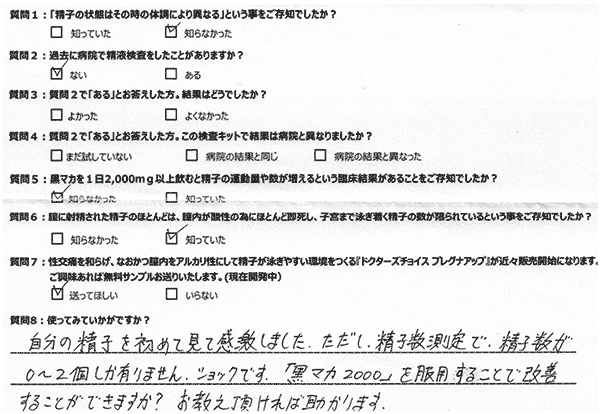 質問1：「精子の状態はその時の体調により異なる」という事をご存知でしたか？
知っていた 知らなかった
質問2：過去に病院で精液検査をしたことがありますか？
ない ある
質問3：質問2で「ある」とお答えした方。結果はどうでしたか？
よかった よくなかった
質問4：質問2で「ある」とお答えした方。この検査キットで結果は病院と異なりましたか？
まだ試していない 病院の結果と同じ 病院の結果と異なった
質問5：黒マカを1日2,000mg以上飲むと精子の運動量や数が増えるという臨床結果があることをご存知でしたか？
知らなかった 知っていた
質問6：膣に射精された精子のほとんどは、膣内が酸性の為にほとんど即死し、子宮まで泳ぎ着く精子の数が限られているという事をご存知でしたか？
知らなかった 知っていた
質問7：性交痛を和らげ、なおかつ膣内をアルカリ性にして精子が泳ぎやすい環境をつくる『ドクターズチョイス プレグナアップ』が近々販売開始になります。
ご興味あれば無料サンプルお送りいたします。(現在開発中)
送ってほしい いらない
質問8：使ってみていかがですか？
自分の精子を初めて見て感激しました。ただし、精子数測定で、精子数が
0～2個しか有りません。ショックです。「黒マカ2000」を服用することで改善
することができますか？ お教え頂ければ助かります。